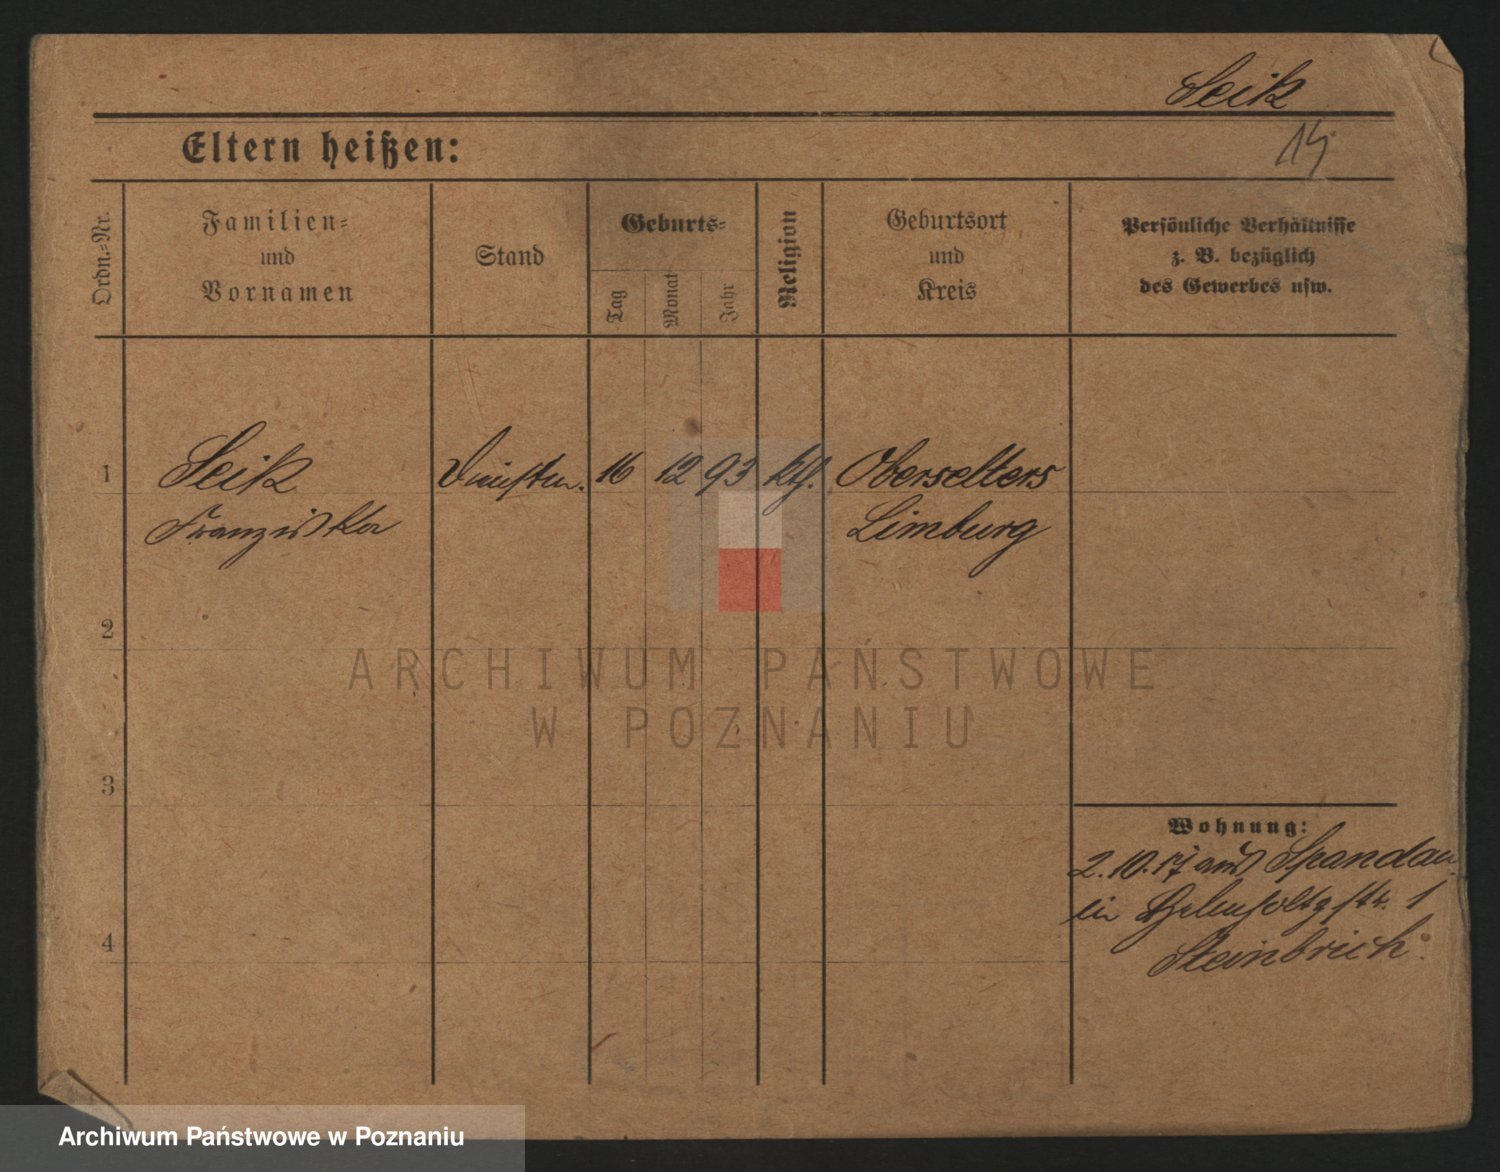 Seik
14
Eltern heißen:
Ordn.=Nr.
Familien=
und
Vornamen
Stand
Geburts=
Tag
Monat
Jahr
Religion
Geburtsort
und
Kreis
Persönliche Verhältnisse
z. B. bezüglich
des Gewerbes usw.
1
Seik
Franziska
16
12
93
kth.
Oberselters
Limburg
2
3
4
Wohnung:
2.10.17 aus Spandau
in Helmholtzstr. 1
Steinbrich.
ARCHIWUM PAŃSTWOWE
W POZNANIU
Archiwum Państwowe w Poznaniu